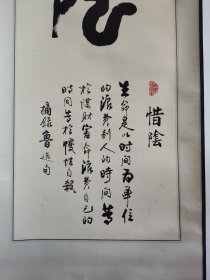 惜陰
生命是以时间为单位
的浪费别人的時间等
於谋财害命浪费自己的
時间等於慢性自殺
摘録魯迅句